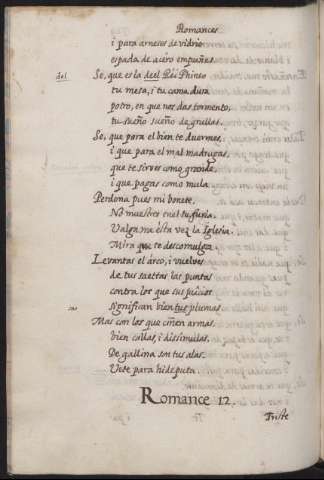 Romances
i para arneses de vidrio
espada de açero empuñes.
del
Se, que es la deel Rei Phineo
tu mesa, i tu cama dura
potro, en que nos das tormento,
tu sueño sueño de grullas.
Se, que para el bien te duermes,
i que para el mal madrugas,
que te sirves como grande,
i que pagas como mula.
Perdona pues mi bonete,
No muestres en el tu furia.
Valga me esta vez la Iglesia.
Mira que te descomulga.
Levantas el arco, i vuelves
de tus saettas las puntas
contra los que sus juiçios
sus
significan bien tus plumas.
Mas con los que ciñen armas
bien callas, i dissimulas.
De gallina son tus alas.
Vete para hideputa.
Romance 12.
Triste